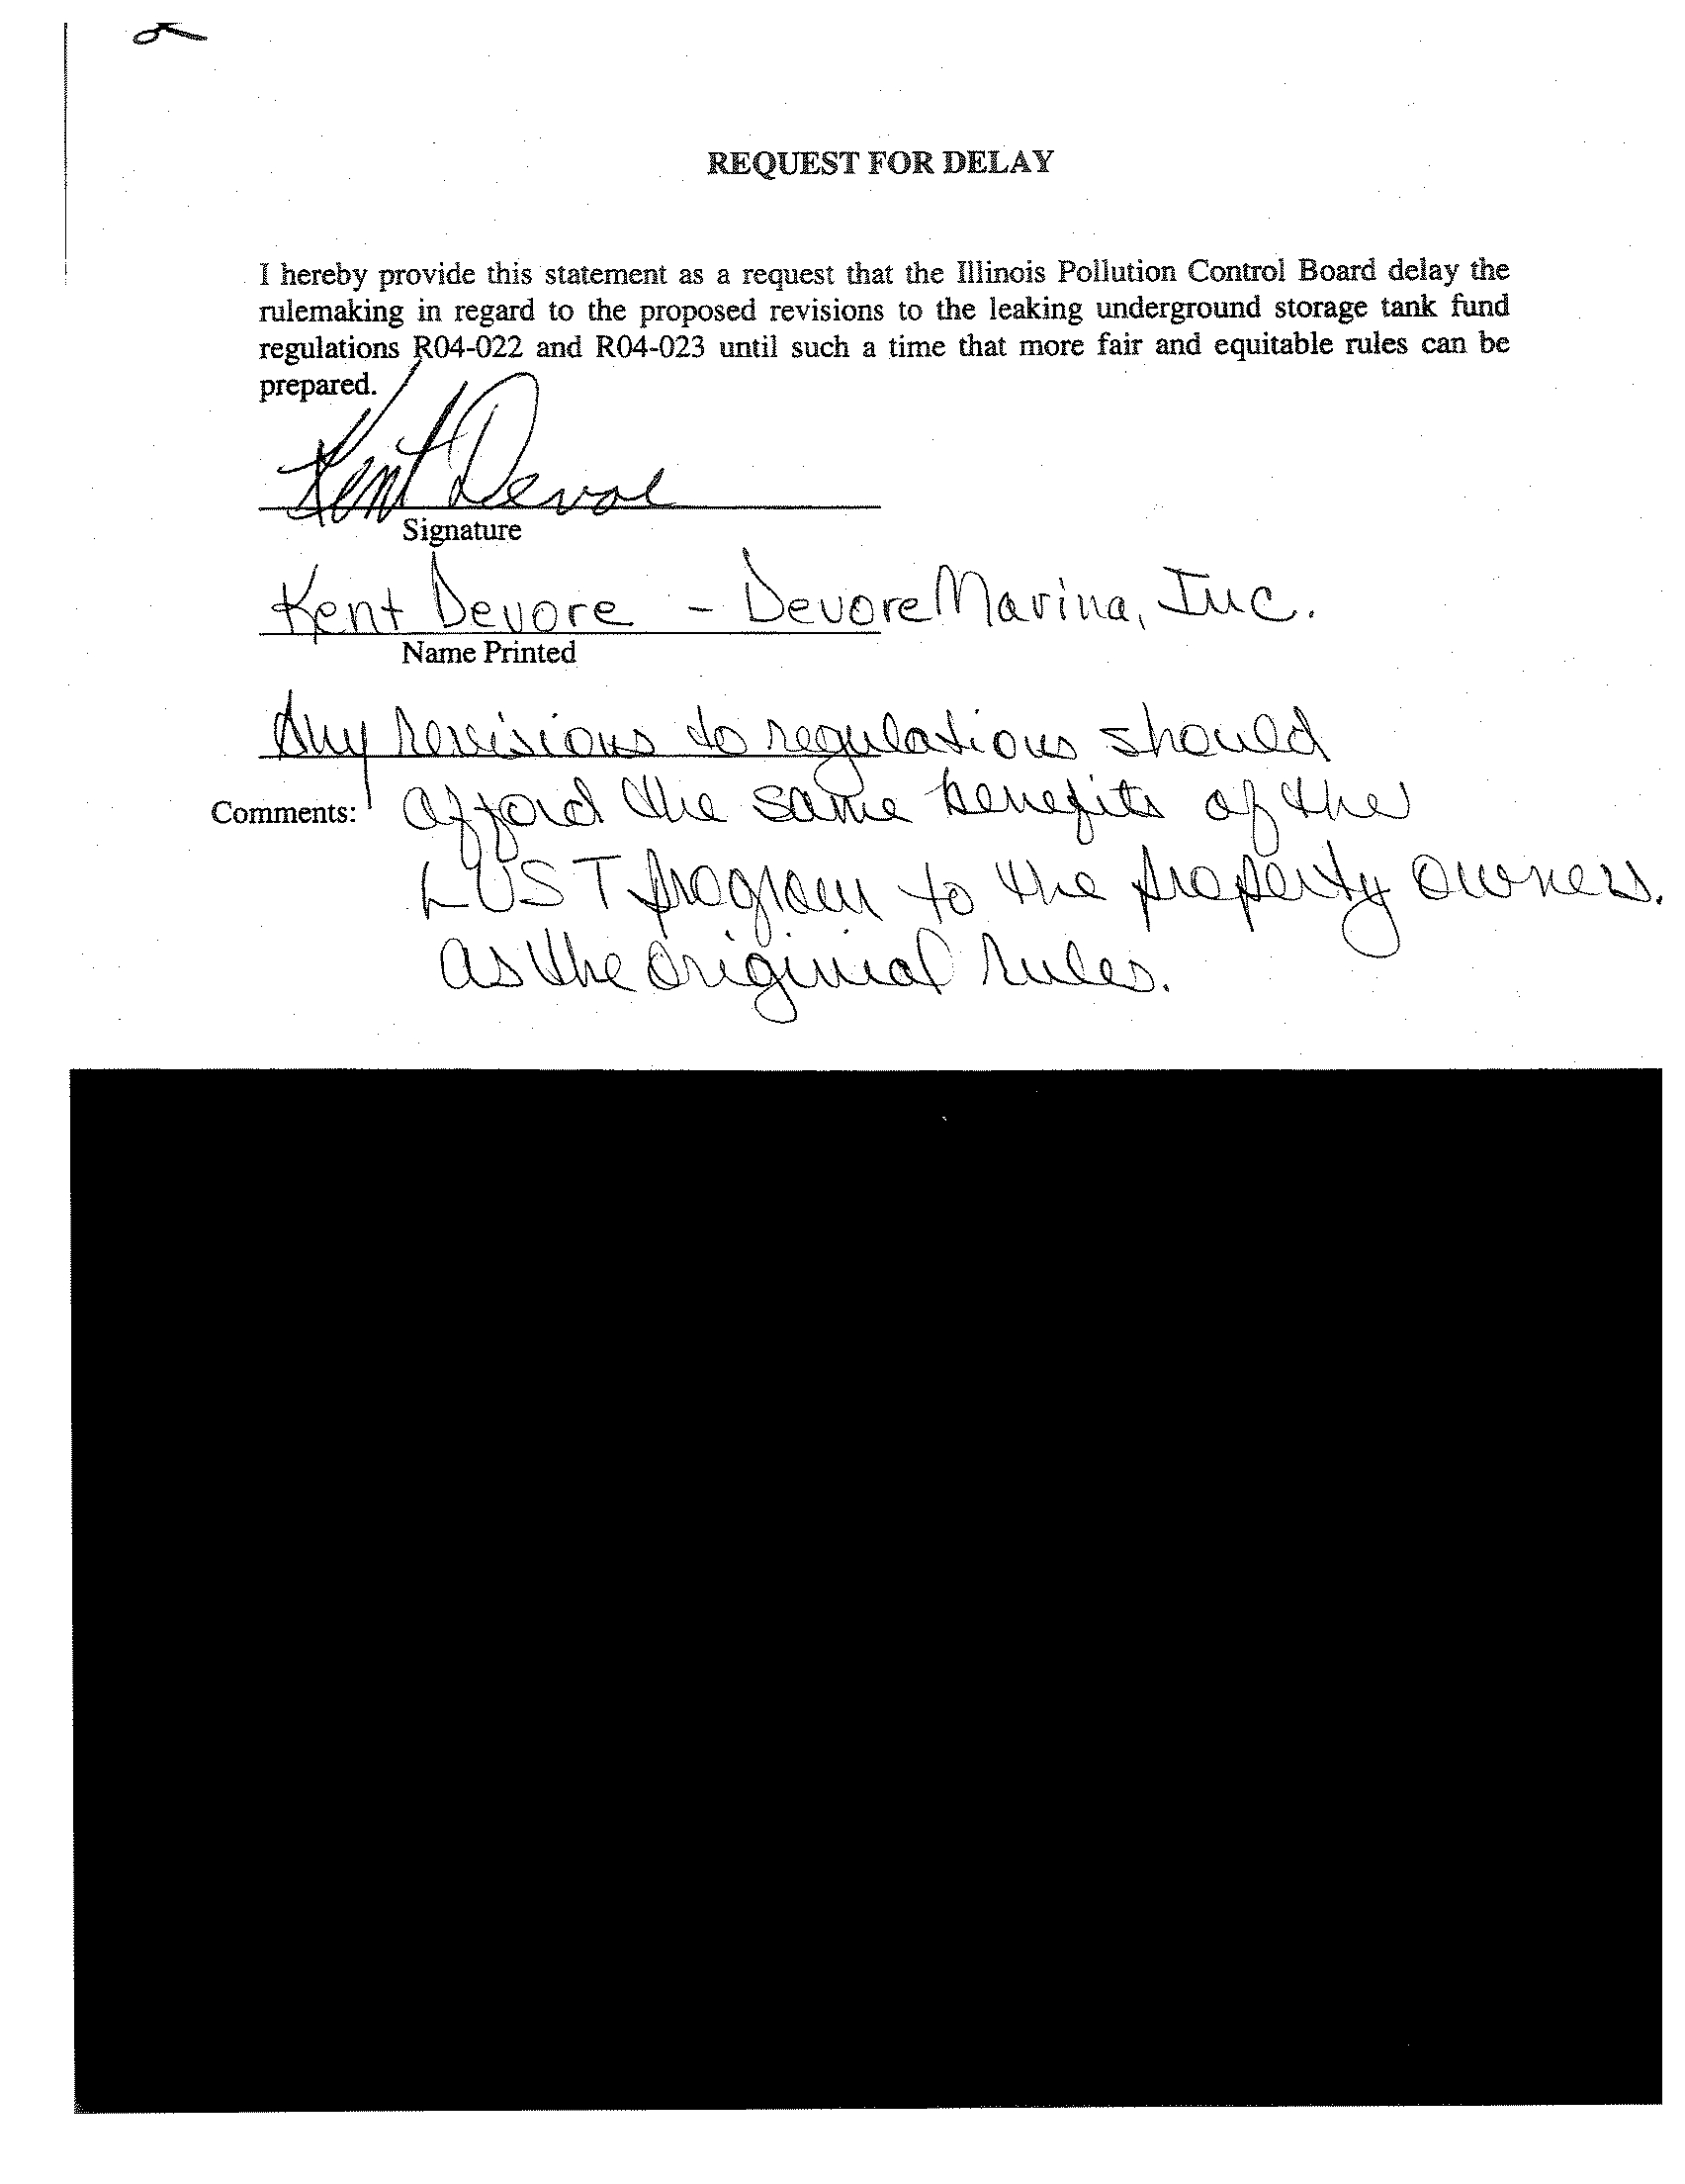 REQUEST FOR DELAY
I hereby provide this statement as a request that the Illinois Pollution Control Board delay the
rulemaking in regard to the proposed revisions to the leaking underground storage tank fund
regulations R04-022 and R04-023 until such a time that more fair and equitable rules can be
prepared.
Kent Devore
Signature
Kent Devore - Devore Marina, Inc.
Name Printed
Any revisions to regulations should
Comments: afford the same benefits of the
LUST program to the property owners.
as the originial rules.